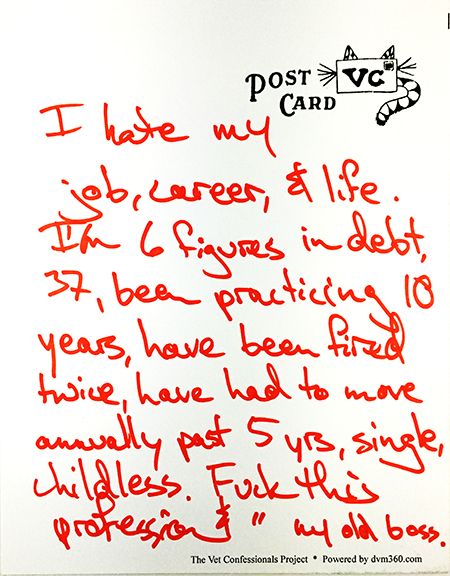 POST
CARD
VC
I hate my
job, career, & life.
I'm 6 figures in debt,
37, been practicing 10
years, have been fired
twice, have had to move
annually past 5 yrs, single,
childless. Fuck this
profession & " my old boss.
The Vet Confessionals Project * Powered by dvm360.com